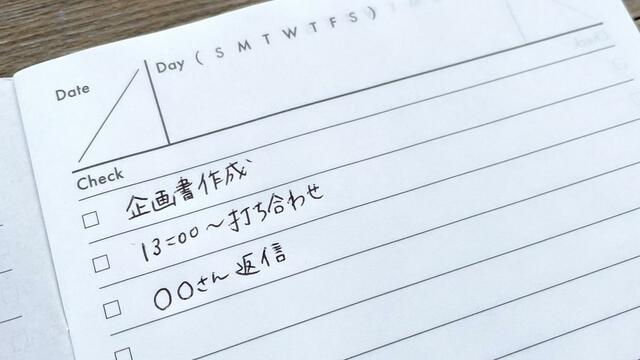 Date
Day ( S M T W T F S )
Check
企画書作成
13:00〜打ち合わせ
〇〇さん返信